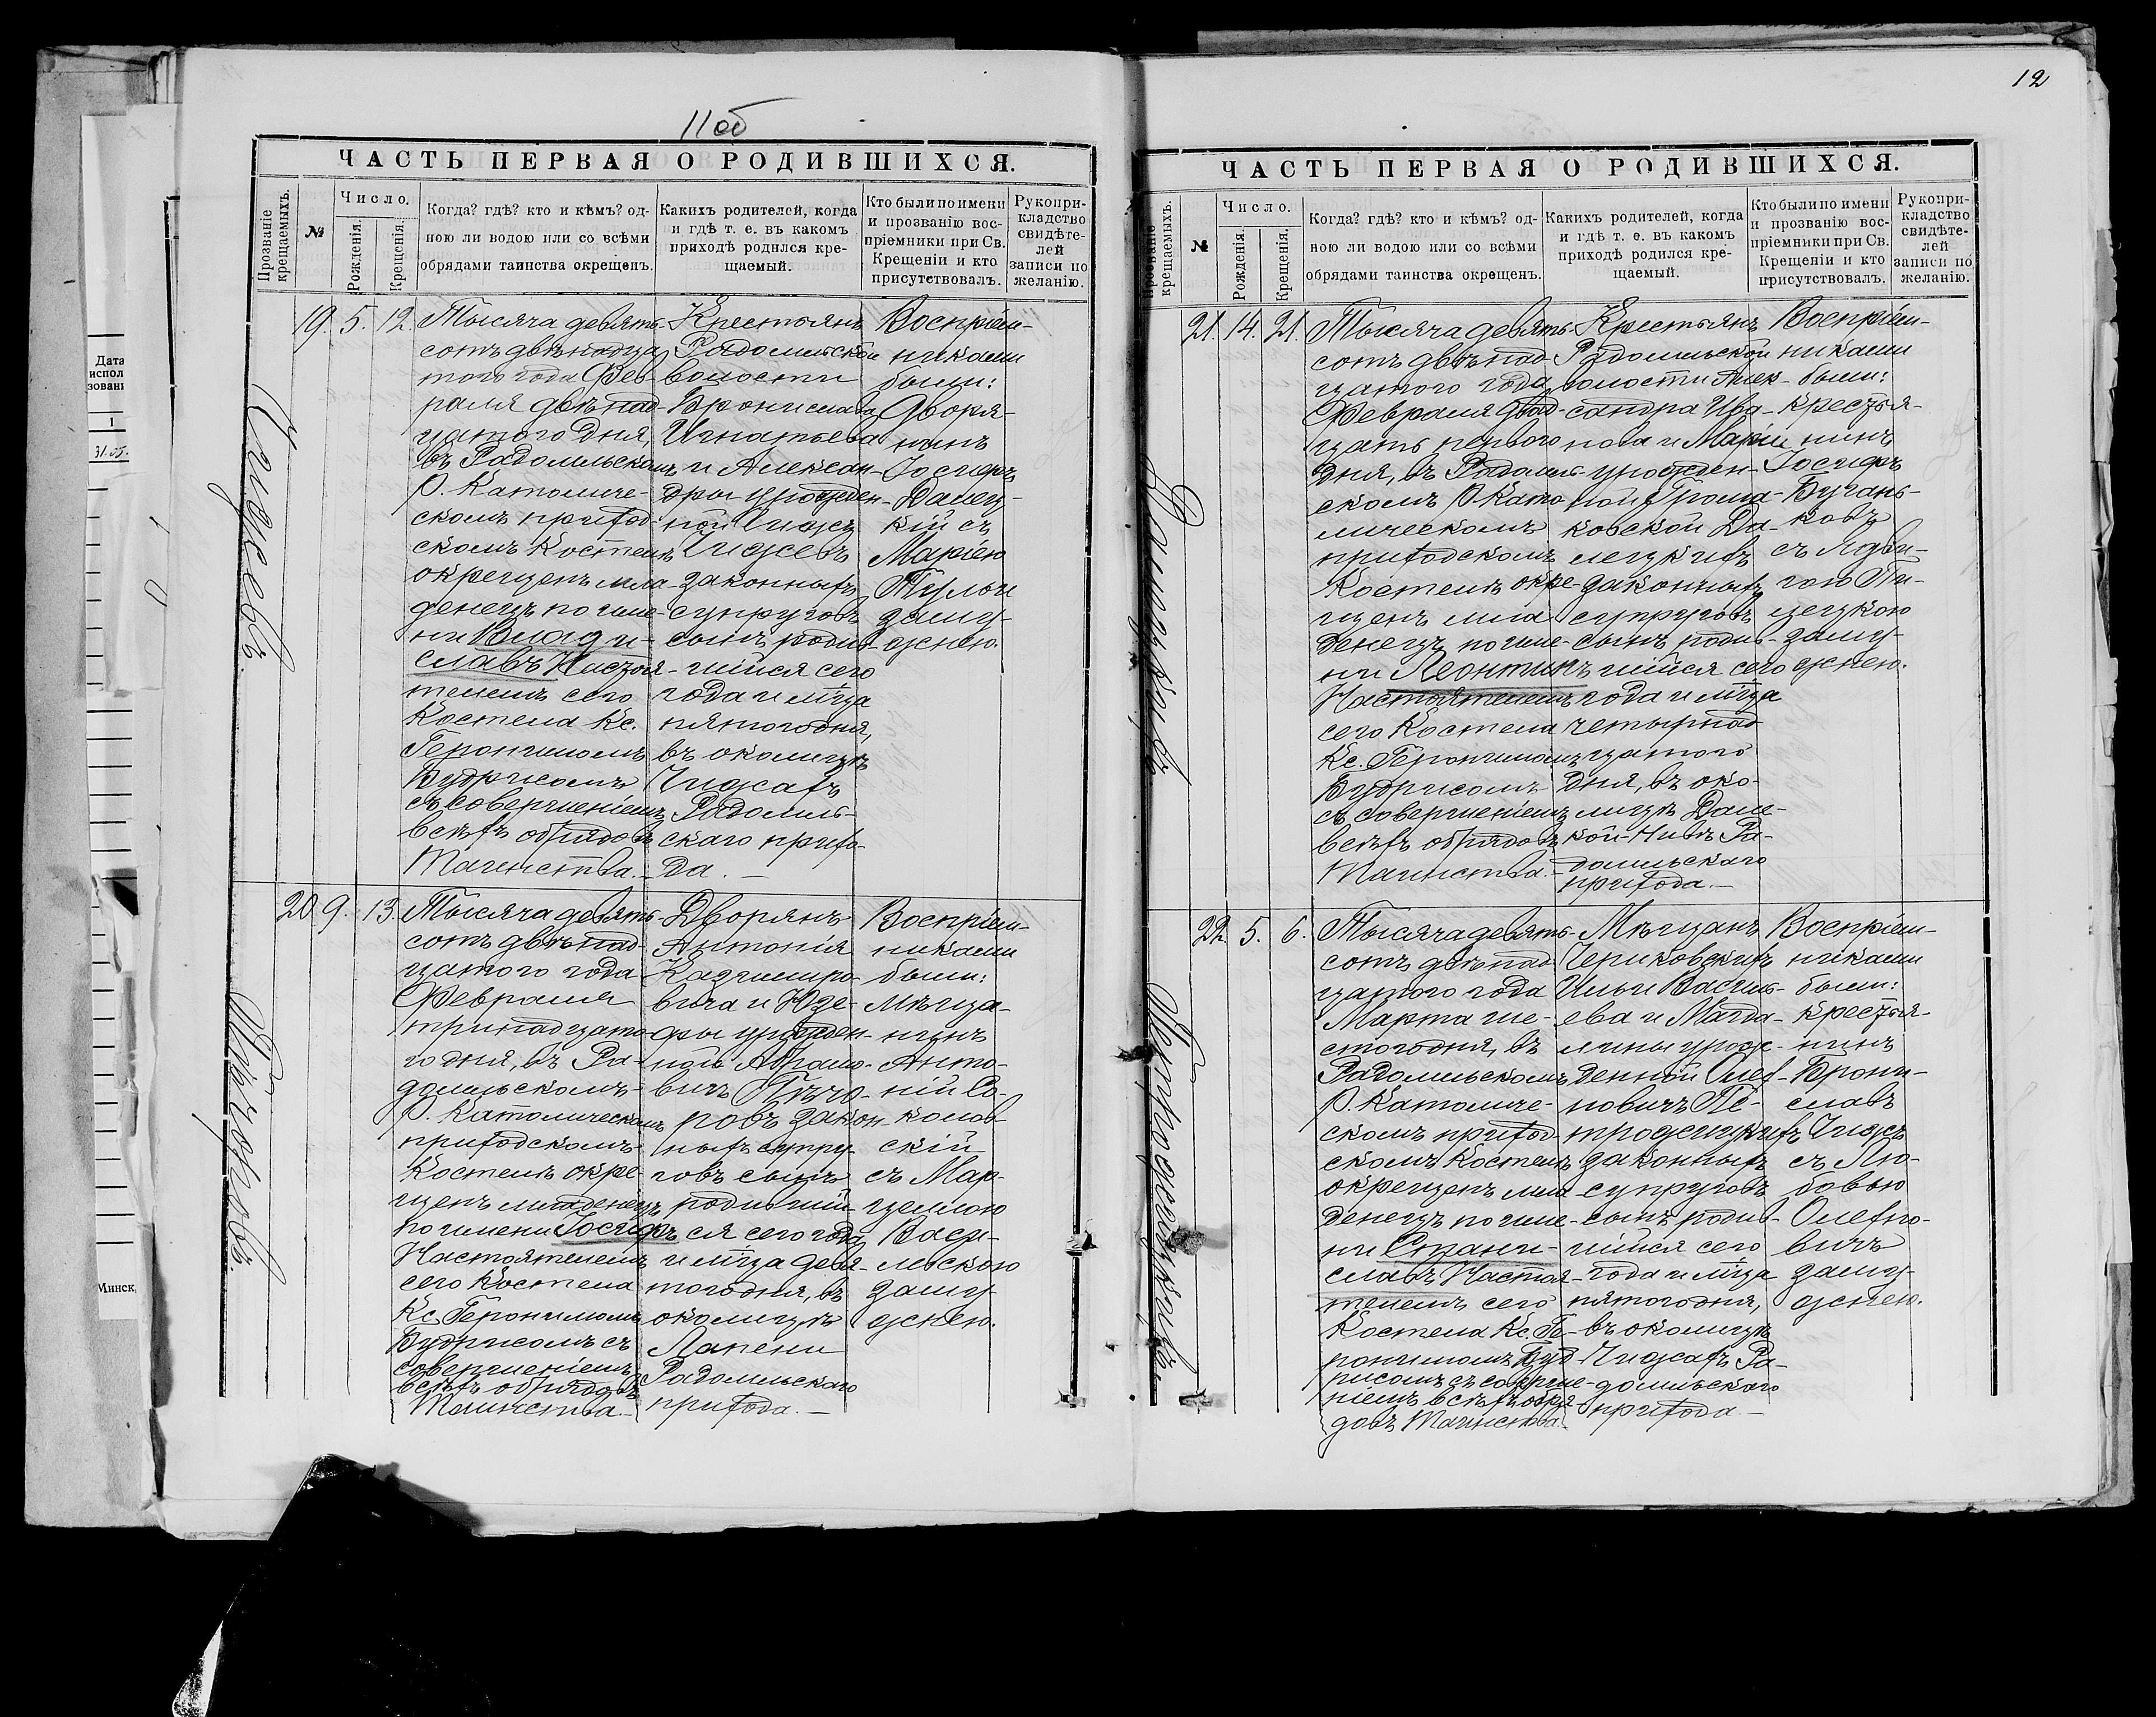 12
11об
ЧАСТЬ ПЕРВАЯ О РОДИВШИХСЯ.
Прозваніе крещаемыхъ.
№
Число.
Рожденія.
Крещенія.
Когда? гдѣ? кто и кѣмъ? од-
ною ли водою или со всѣми
обрядами таинства окрещенъ.
Какихъ родителей, когда
и гдѣ т. е. въ какомъ
приходѣ родился кре-
щаемый.
Кто были по имени
и прозванію вос-
пріемники при Св.
Крещеніи и кто
присутствовалъ.
Рукопри-
кладство
свидѣте-
лей
записи по
желанію.
Чижевъ.
19. 5. 12.
Тысяча девять-
сотъ двѣнадца
того года Фев-
раля двѣнад-
цатого дня,
въ Радомльскомъ
Р. Католиче-
скомъ приход-
скомъ Костелѣ
окрещенъ мла-
денецъ по име-
ни Влади-
славъ Настоя-
телемъ сего
Костела Кс.
Геронимомъ
Будрисомъ
съ совершеніемъ
всѣхъ обрядовъ
Таинства.
Крестьянъ
Радомльской
волости
Бронислава
Игнатьева
и Алексан-
дры урожден-
ной Чижъ
Чижевъ
законныхъ
супруговъ
сынъ родив-
шійся сего
года и м̃ца
пятого дня,
въ околицѣ
Чижахъ
Радомль-
скаго прихо-
да.
Воспріем-
никами
были:
Дворя-
нинъ
Іосифъ
Далец-
кій съ
Маріею
заму-
жнею.
20. 9. 13.
Тысяча девять-
сотъ двѣнад-
цатого года
Февраля
тринадцато-
го дня, въ Ра-
домльскомъ
Р. Католическомъ
приходскомъ
Костелѣ окре-
щенъ младенецъ
по имени Іосифъ
Настоятелемъ
сего Костела
Кс. Геронимомъ
Будрисомъ съ
совершеніемъ
всѣхъ обрядовъ
Таинства.
Дворянъ
Антонія
Казимиро-
вича и Юзе-
фы урожден-
ной Абрамо-
вичъ
законн-
ныхъ супру-
говъ сынъ
родивший-
ся сего года
и м̃ца девя-
того дня, въ
околицѣ
Лапени
Радомльскаго
прихода.
Воспріем-
никами
были:
Мѣща-
нинъ
Анто-
ній Со-
колов-
скій
съ Мар-
целлою
Васи-
левскою
заму-
жнею.
ЧАСТЬ ПЕРВАЯ О РОДИВШИХСЯ.
Прозваніе крещаемыхъ.
№
Число.
Рожденія.
Крещенія.
Когда? гдѣ? кто и кѣмъ? од-
ною ли водою или со всѣми
обрядами таинства окрещенъ.
Какихъ родителей, когда
и гдѣ т. е. въ какомъ
приходѣ родился кре-
щаемый.
Кто были по имени
и прозванію вос-
пріемники при Св.
Крещеніи и кто
присутствовалъ.
Рукопри-
кладство
свидѣте-
лей
записи по
желанію.
Далецкій
21. 14. 21.
Тысяча девять-
сотъ двѣнад-
цатого года
Февраля двад-
цать первого
дня, въ Радомль-
скомъ Р. Като-
лическомъ
приходскомъ
Костелѣ окре-
щенъ мла
денецъ по име-
ни Леонтинъ
Настоятелемъ
сего Костела
Кс. Геронимомъ
Будрисомъ
съ совершеніемъ
всѣхъ обрядовъ
Таинства.
Крестьянъ
Радомльской
волости Алек-
сандра Ива-
нова и Маріи
урожден-
ной Грома-
ковской Да-
лецкихъ
законныхъ
супруговъ
сынъ родив-
шійся сего
года и м̃ца
четырнад
цатого
дня, въ око-
лицѣ Дале-
кой-Нивѣ Ра-
домльскаго
прихода.
Воспріем-
никами
были:
крестья-
нинъ
Іосифъ
Бучань-
ковъ
съ Ядви-
гою
заму-
жнею.
Петрожицкій.
22. 5. 6.
Тысяча девять-
сотъ двѣнад
цатого года
Марта ше-
стого дня, въ
Радомльскомъ
Р. Католиче-
скомъ приход-
скомъ Костелѣ
окрещенъ мла
денецъ по име-
ни Стани-
славъ Настоя-
телемъ сего
Костела Кс. Ге-
ронимомъ Буд-
рисомъ съ соверше-
ніемъ всѣхъ обря-
довъ Таинства.
Мѣщанъ
Чериковскихъ
Ильи Василь-
ева и Магда-
лины урож-
денной Олех-
новичъ Пе-
трожицкихъ
законныхъ
супруговъ
сынъ родив-
шійся сего
года и м̃ца
пятого дня,
въ околицѣ
Чижахъ Ра-
домльскаго
прихода.
Воспріем-
никами
были:
крестья-
нинъ
Брони-
славъ
Чижъ
съ Лю-
бовью
Олехно-
вичъ
заму-
жнею.
Дата
испол
зовані
1
31.05.
Минск,